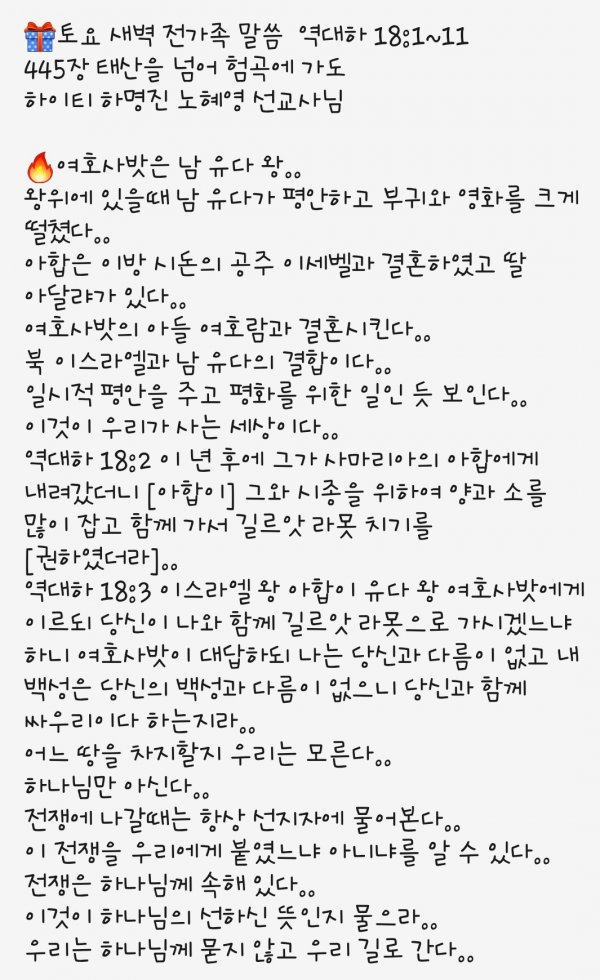 🎁토요 새벽 전가족 말씀  역대하 18:1~11
445장 태산을 넘어 험곡에 가도
하이티 하명진 노혜영 선교사님

🔥여호사밧은 남 유다 왕。。
왕위에 있을때 남 유다가 평안하고 부귀와 영화를 크게
떨쳤다。。
아합은 이방 시돈의 공주 이세벨과 결혼하였고 딸
아달랴가 있다。。
여호사밧의 아들 여호람과 결혼시킨다。。
북 이스라엘과 남 유다의 결합이다。。
일시적 평안을 주고 평화를 위한 일인 듯 보인다。。
이것이 우리가 사는 세상이다。。
역대하 18:2 이 년 후에 그가 사마리아의 아합에게
내려갔더니 [아합이] 그와 시종을 위하여 양과 소를
많이 잡고 함께 가서 길르앗 라못 치기를
[권하였더라]。。
역대하 18:3 이스라엘 왕 아합이 유다 왕 여호사밧에게
이르되 당신이 나와 함께 길르앗 라못으로 가시겠느냐
하니 여호사밧이 대답하되 나는 당신과 다름이 없고 내
백성은 당신의 백성과 다름이 없으니 당신과 함께
싸우리이다 하는지라。。
어느 땅을 차지할지 우리는 모른다。。
하나님만 아신다。。
전쟁에 나갈때는 항상 선지자에 물어본다。。
이 전쟁을 우리에게 붙였느냐 아니냐를 알 수 있다。。
전쟁은 하나님께 속해 있다。。
이것이 하나님의 선하신 뜻인지 물으라。。
우리는 하나님께 묻지 않고 우리 길로 간다。。